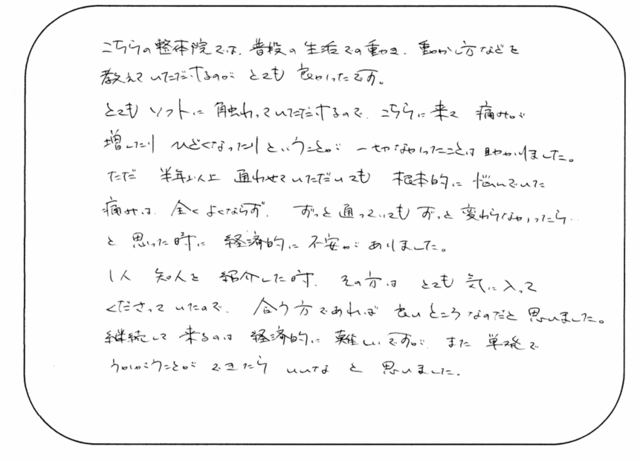 こちらの整体院では、普段の生活での動き、動かし方などを
教えていただけるのがとても良かったです。
とてもソフトに触わっていただけるので、こちらに来て痛みが
増したりひどくなったりということが一切なかったことは助かりました。
ただ半年以上通わせていただいても根本的に悩んでいた
痛みは、全くよくならず、ずっと通っていてもずっと変わらなかったら…
と思った時に経済的に不安がありました。
1人知人を紹介した時、その方はとても気に入って
くださっていたので、合う方であれば良いところなのだと思いました。
継続して来るのは経済的に難しいですが、また単発で
うかがうことができたらいいなと思いました。